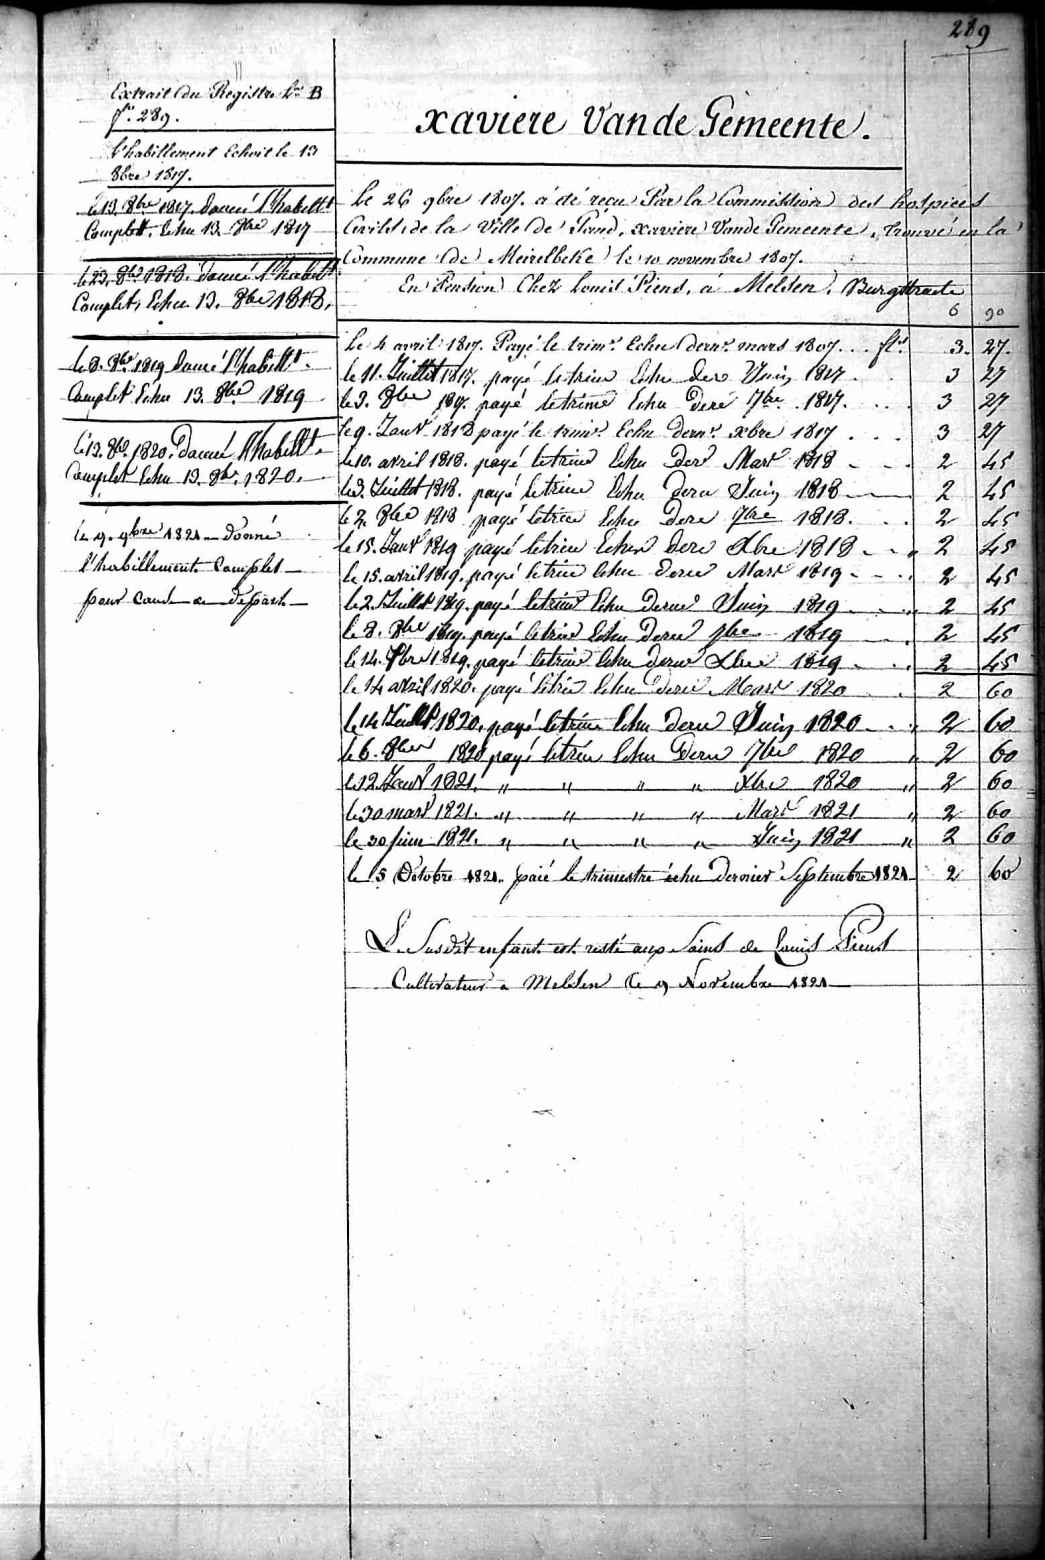 289
Extrait du Registre Lre B
fo. 289.
L'habillement Echoit le 13
8bre 1817.
le 13. 8bre 1817. Donné l'habellt
Complett. Echu 13. 8bre 1817
le 23. 8bre 1818. Donné l'habellt
Complet, Echu 13. 8bre 1818.
le 8. 8bre 1819 Donné l'habillt
Complet Echu 13. 8bre 1819
le 13. 8bre 1820. Donné l'habillt
Complet Echu 13. 8bre. 1820.
le 9. 9bre 1821 Donné
l'habillement Complet
pour Cause de départ
xaviere Vande Gemeente.
Le 26 9bre 1807. à été reçu Par la Commission des hospices
Civils, de la Ville de Gand, xaviere Vande Gemeente, Trouvé en la
Commune de Meirelbeke le 10 novembre 1807.
En Pension Chez Louis Piens, à Melsen, Burgstraete
6 90
Le 4 avril 1817. Payé le trimr. Echu dernr. mars 1807... fls. 3. 27.
le 11. Juillet 1817. payé letrim Echu der Juin 1817 . 3 27
le 3. 8bre 1817. payé letrime Echu deré 7bre 1817. . . . 3 27
le 9. Janvr 1818 payé le trimr. Echu dernr. xbre 1817 . . . 3 27
le 10. avril 1818. payé letrim Echu der Mars 1818 - - . 2 45
le 3. Juillet 1818. payé letrim Echu dern Juin 1818 2 45
le 2 8bre 1818 payé letrim Echu dere 7bre 1818. . . 2 45
le 15. Janvr 1819 payé letrim Echu dere Xbre 1818 - - „ 2 45
le 15. avril 1819. payé letrim Echu derne Mars 1819 - - . 2 45
le 2. Juillet 1819. payé letrim Echu derne Juin 1819 - - „ 2 45
le 8. 8bre 1819. payé letrim Echu derne 7bre 1819 - . 2 45
le 14. Xbre 1819. payé letrim Echu derne Xbre 1819 . . 2 45
le 14 avril 1820. payé letrim Echu derne Mars 1820 . 2 60
le 14 Juillt 1820. payé letrim Echu derne Juin 1820 - - „ 2 60
le 6. 8bre 1820 payé letrim Echu Derne 7bre 1820 „ 2 60
le 12. Janvr 1821. „ „ „ „ Xbre 1820 „ 2 60
le 30 mars 1821. „ „ „ „ Mars 1821 „ 2 60
le 30 juin 1821. „ „ „ „ Juin 1821 „ 2 60
le 5 Octobre 1821. païé le trimestre échu dernier Septembre 1821 2 60
L. Susdit enfant est resté aux Soins de Louis Piens
Cultivateur à Melsen le 9 Novembre 1821